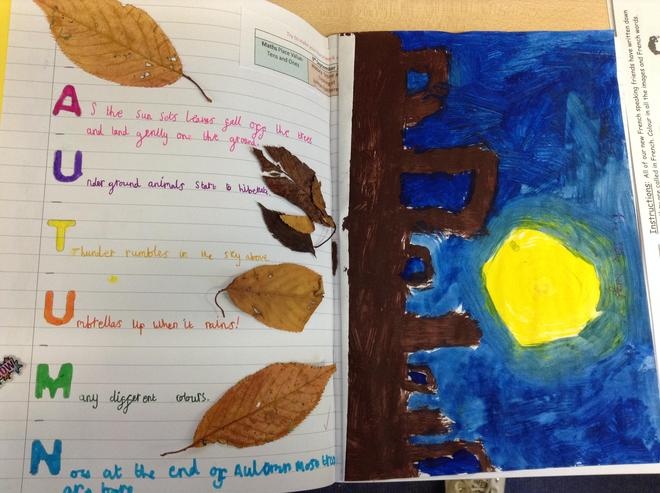 Maths Place Value:
Tens and Ones
As the sun sets leaves fall off the trees
and land gently one the ground.
Under ground animals start to
Thunder rumbles in the sky above
Umbrellas Up when it rains!
Many different colours.
Now at the end of Autumn most
are bare
WOW
Instructions: All of our new French speaking friends have written down
are called in French. Colour in all the images and French words.